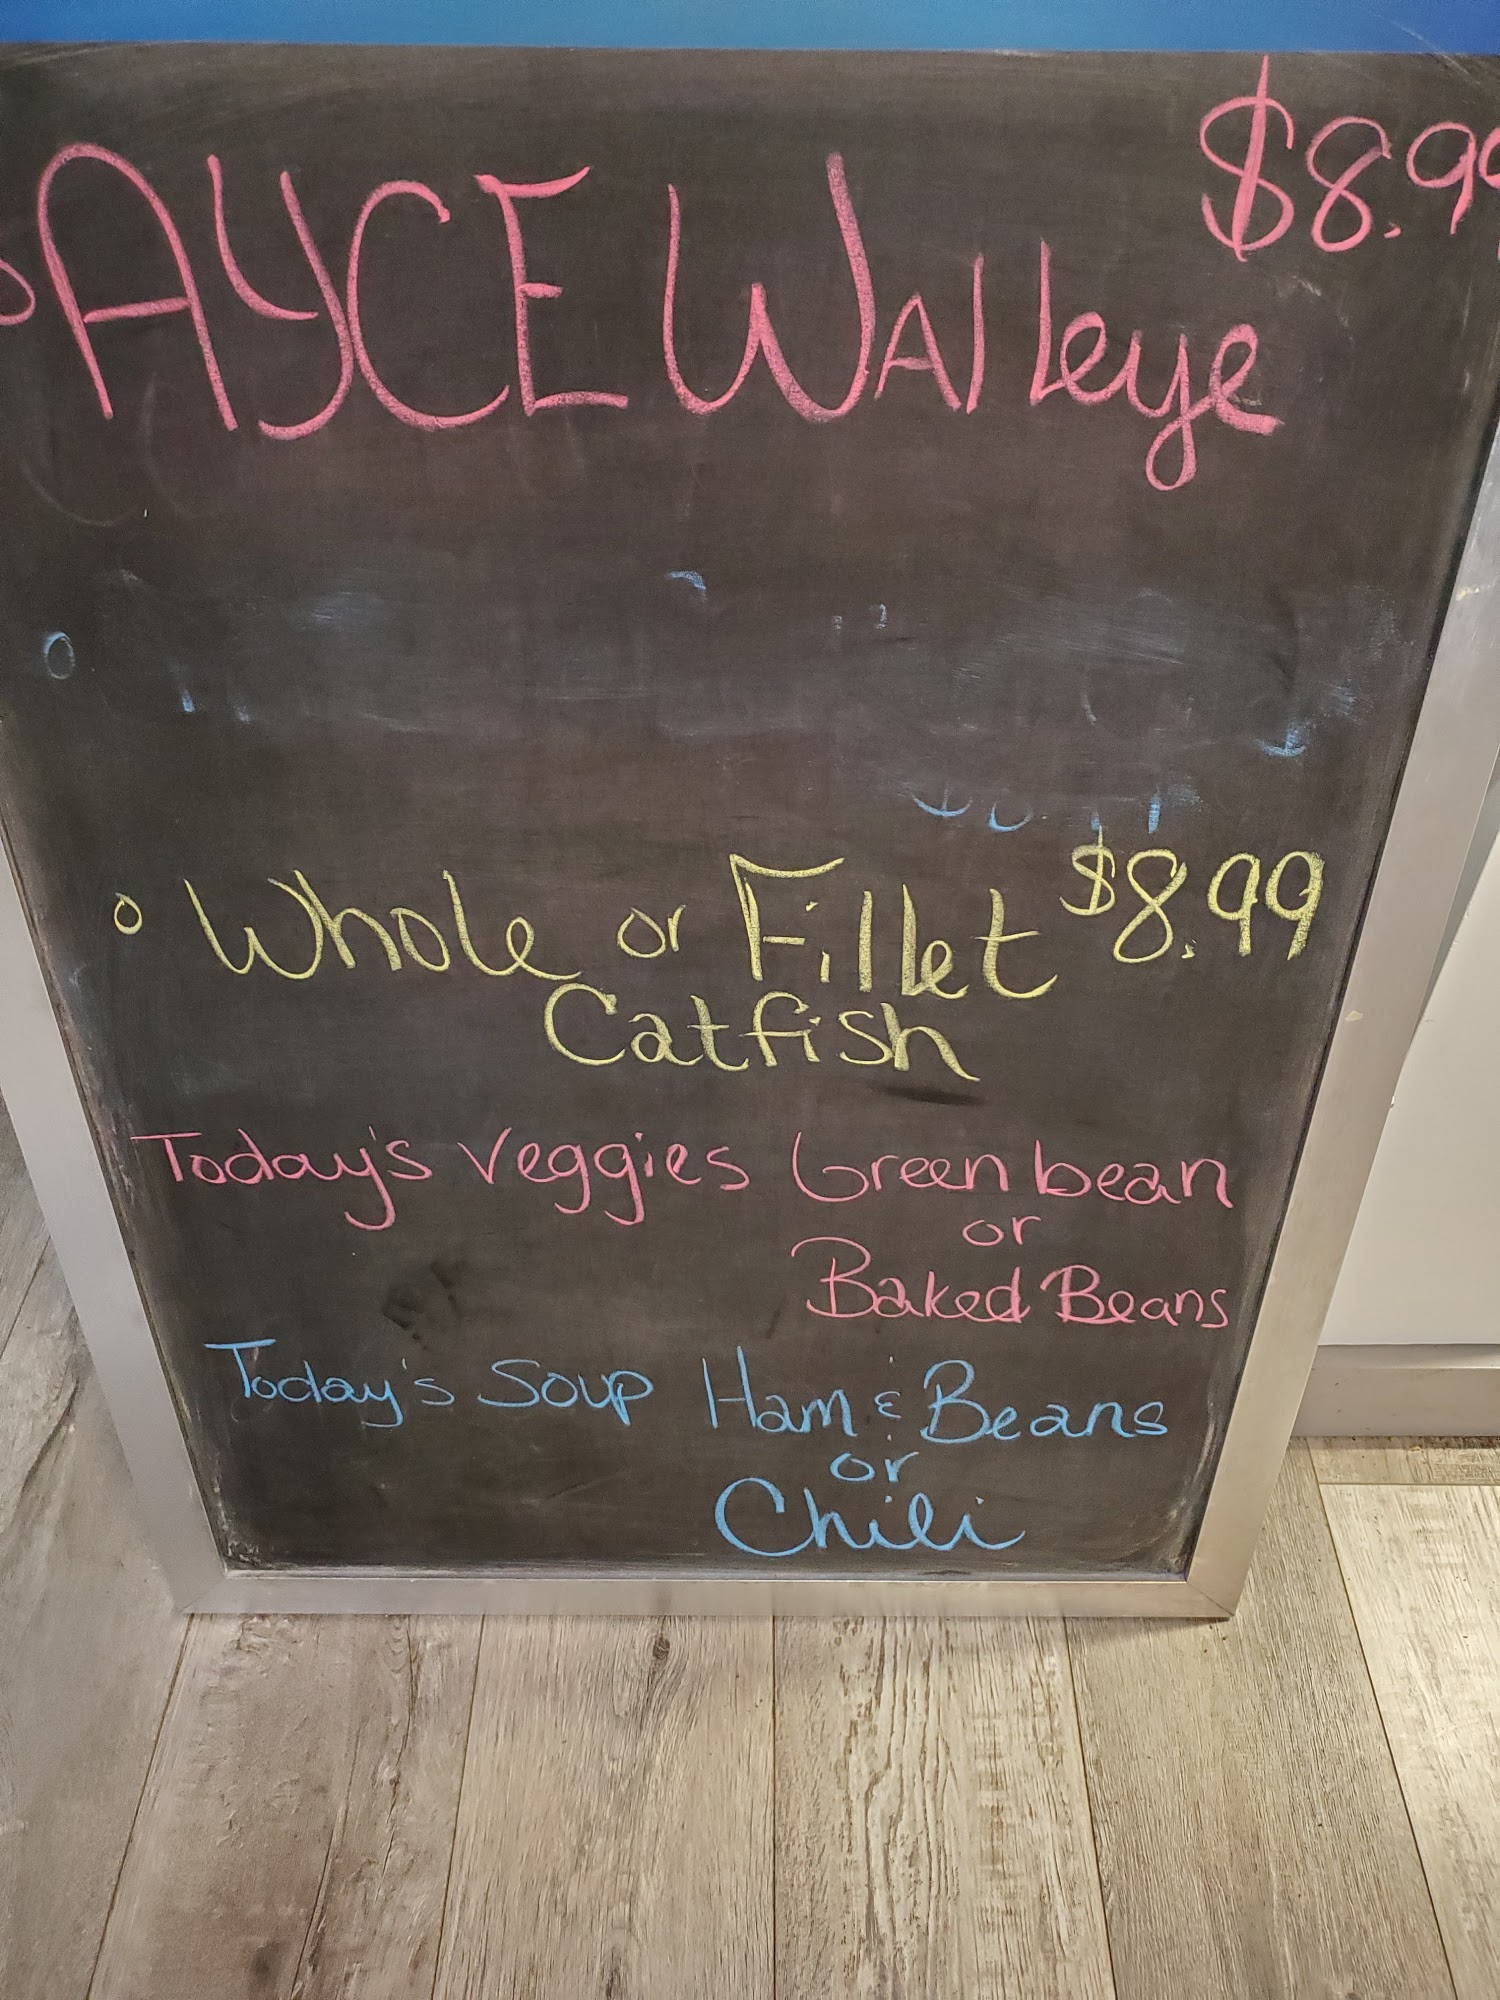 AYCE Walleye $8.99
Whole or Fillet $8.99
Catfish
Today's Veggies Green bean
or
Baked Beans
Today's Soup Ham & Beans
or
Chili